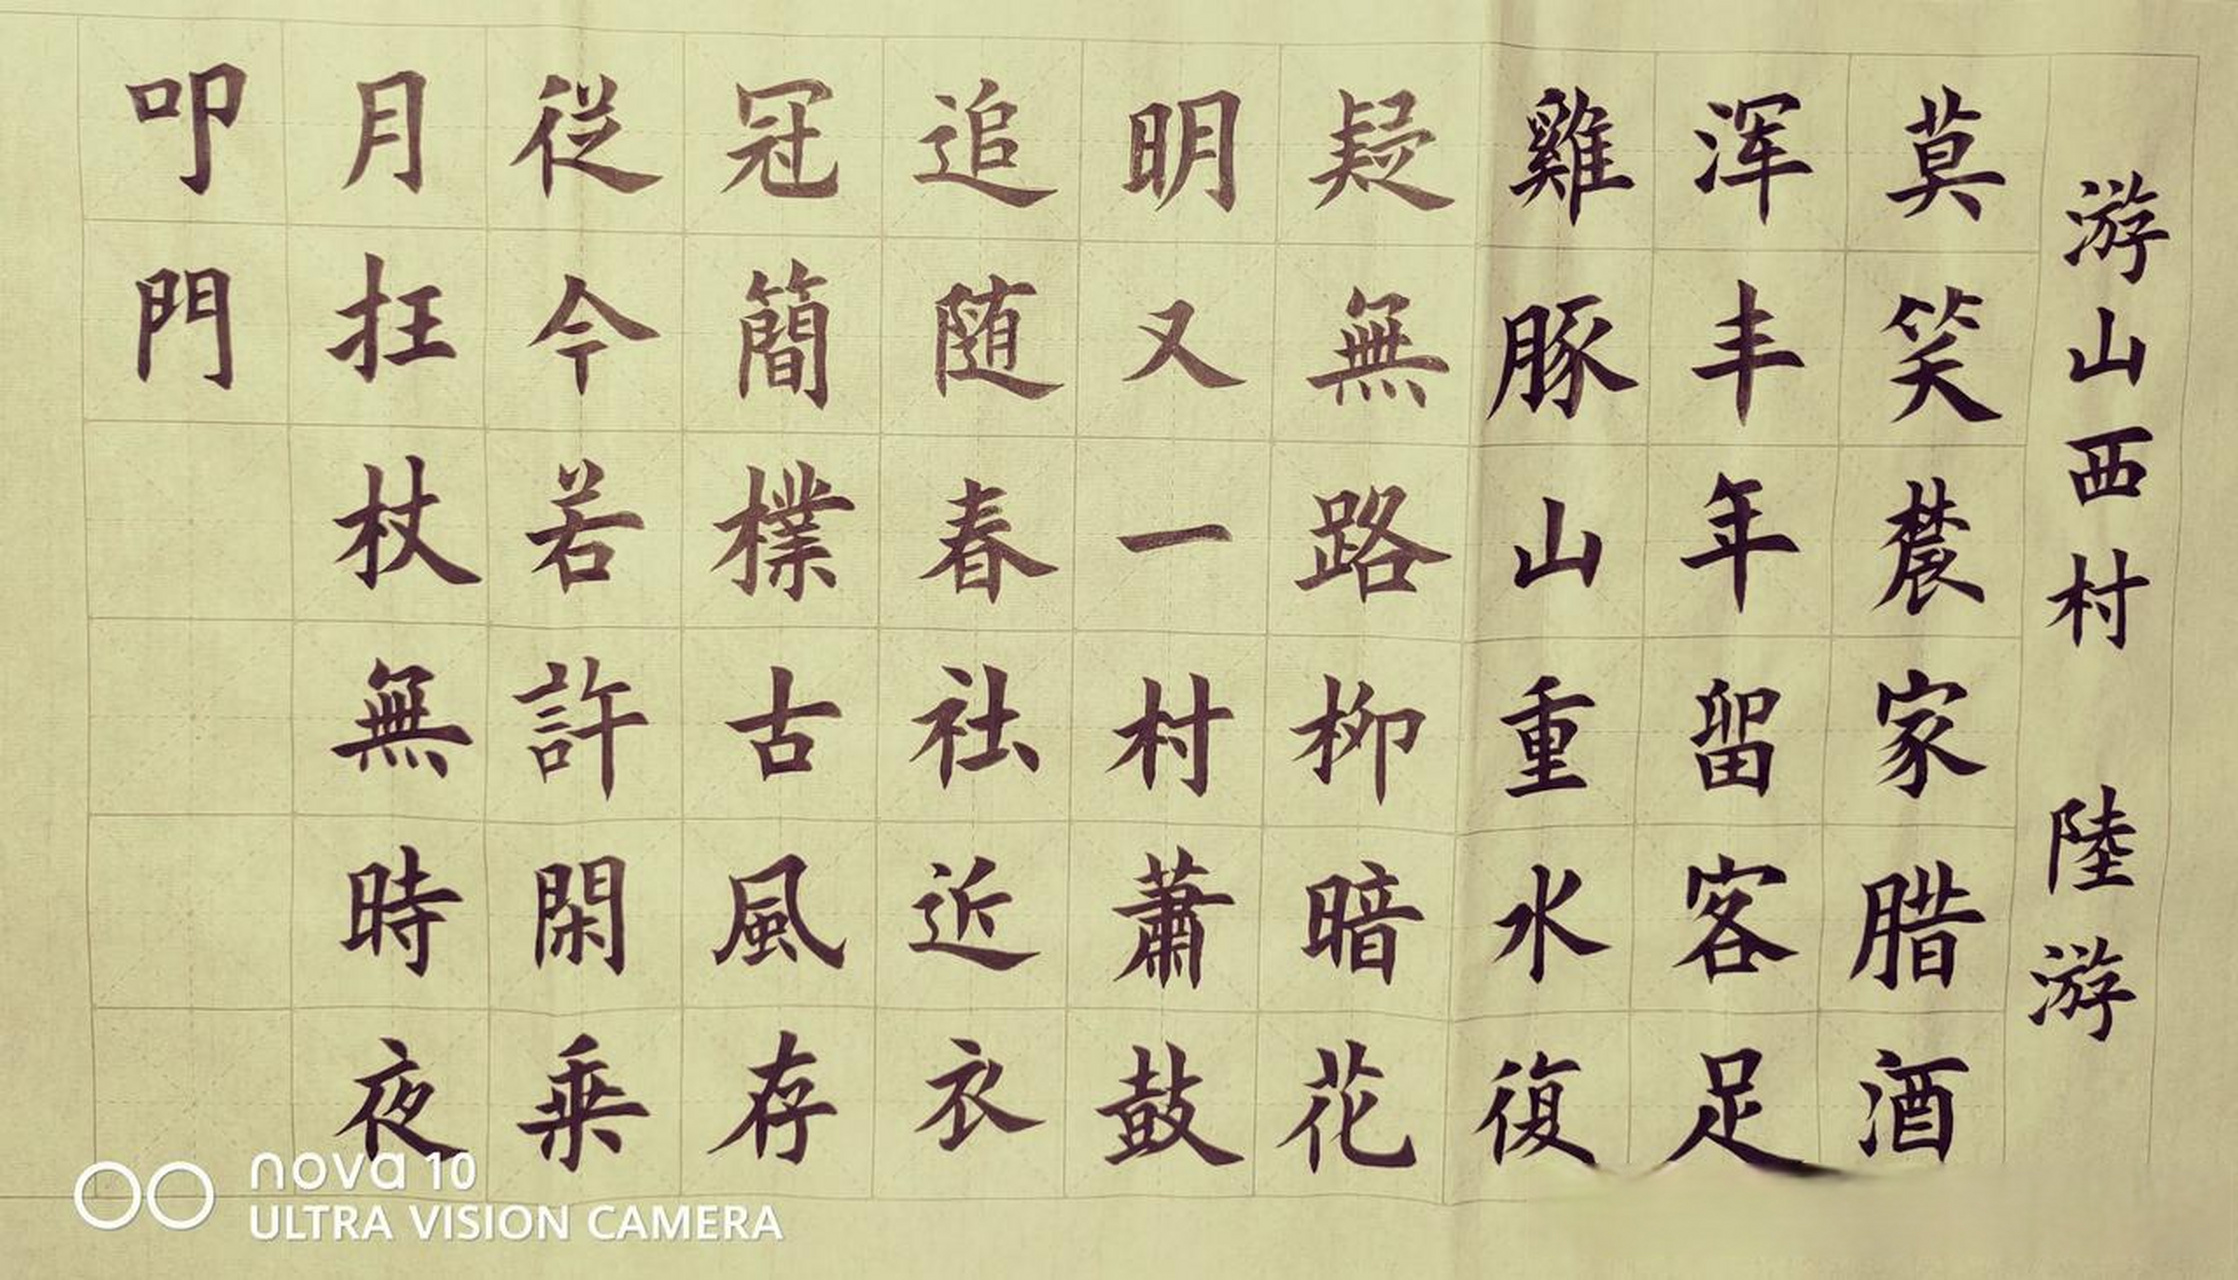 游山西村 陸游
莫笑農家腊酒
浑丰年留客足
雞豚山重水復
疑無路柳暗花
明又一村蕭鼓
追随春社近衣
冠簡樸古風存
従今若許閑乗
月抂杖無時夜
叩門
nova 10
ULTRA VISION CAMERA